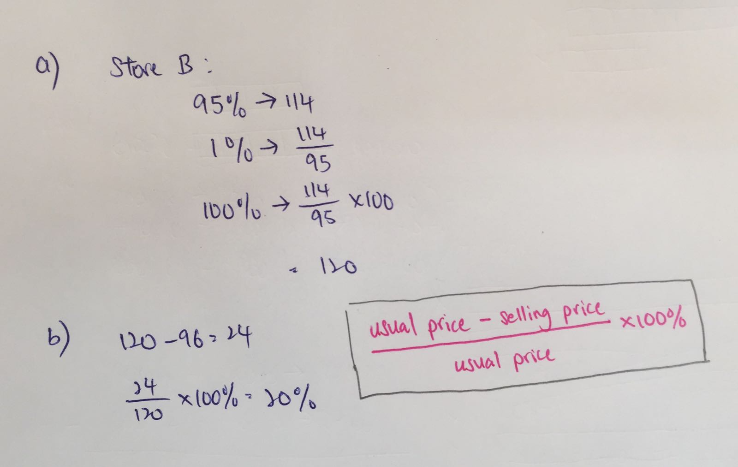 a) Store B :
95% → 114
1% → 114/95
100% → 114/95 ×100
= 120
b) 120 - 96 = 24
24/120 ×100% = 20%
usual price - selling price / usual price ×100%